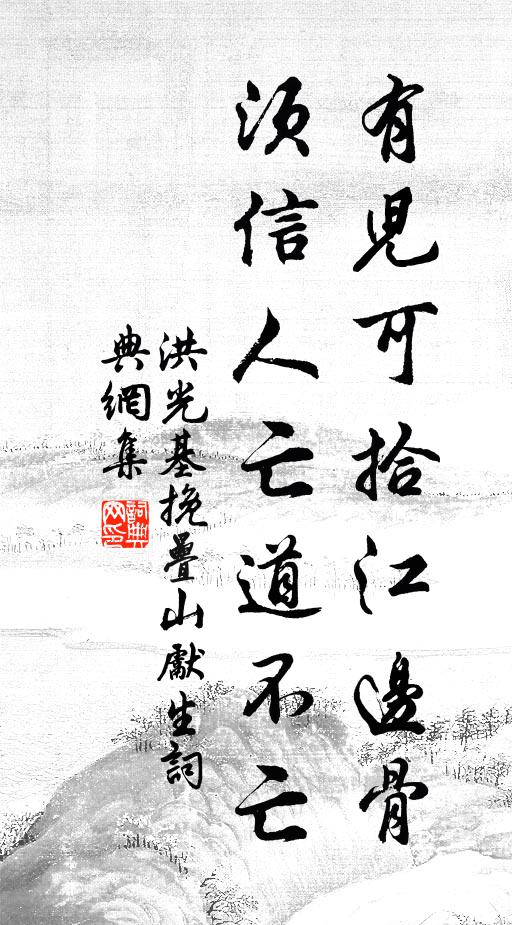 有児可拾江邊骨
須信人亡道不亡
洪光基挽疊山獻生詞
典網集
詞典網印